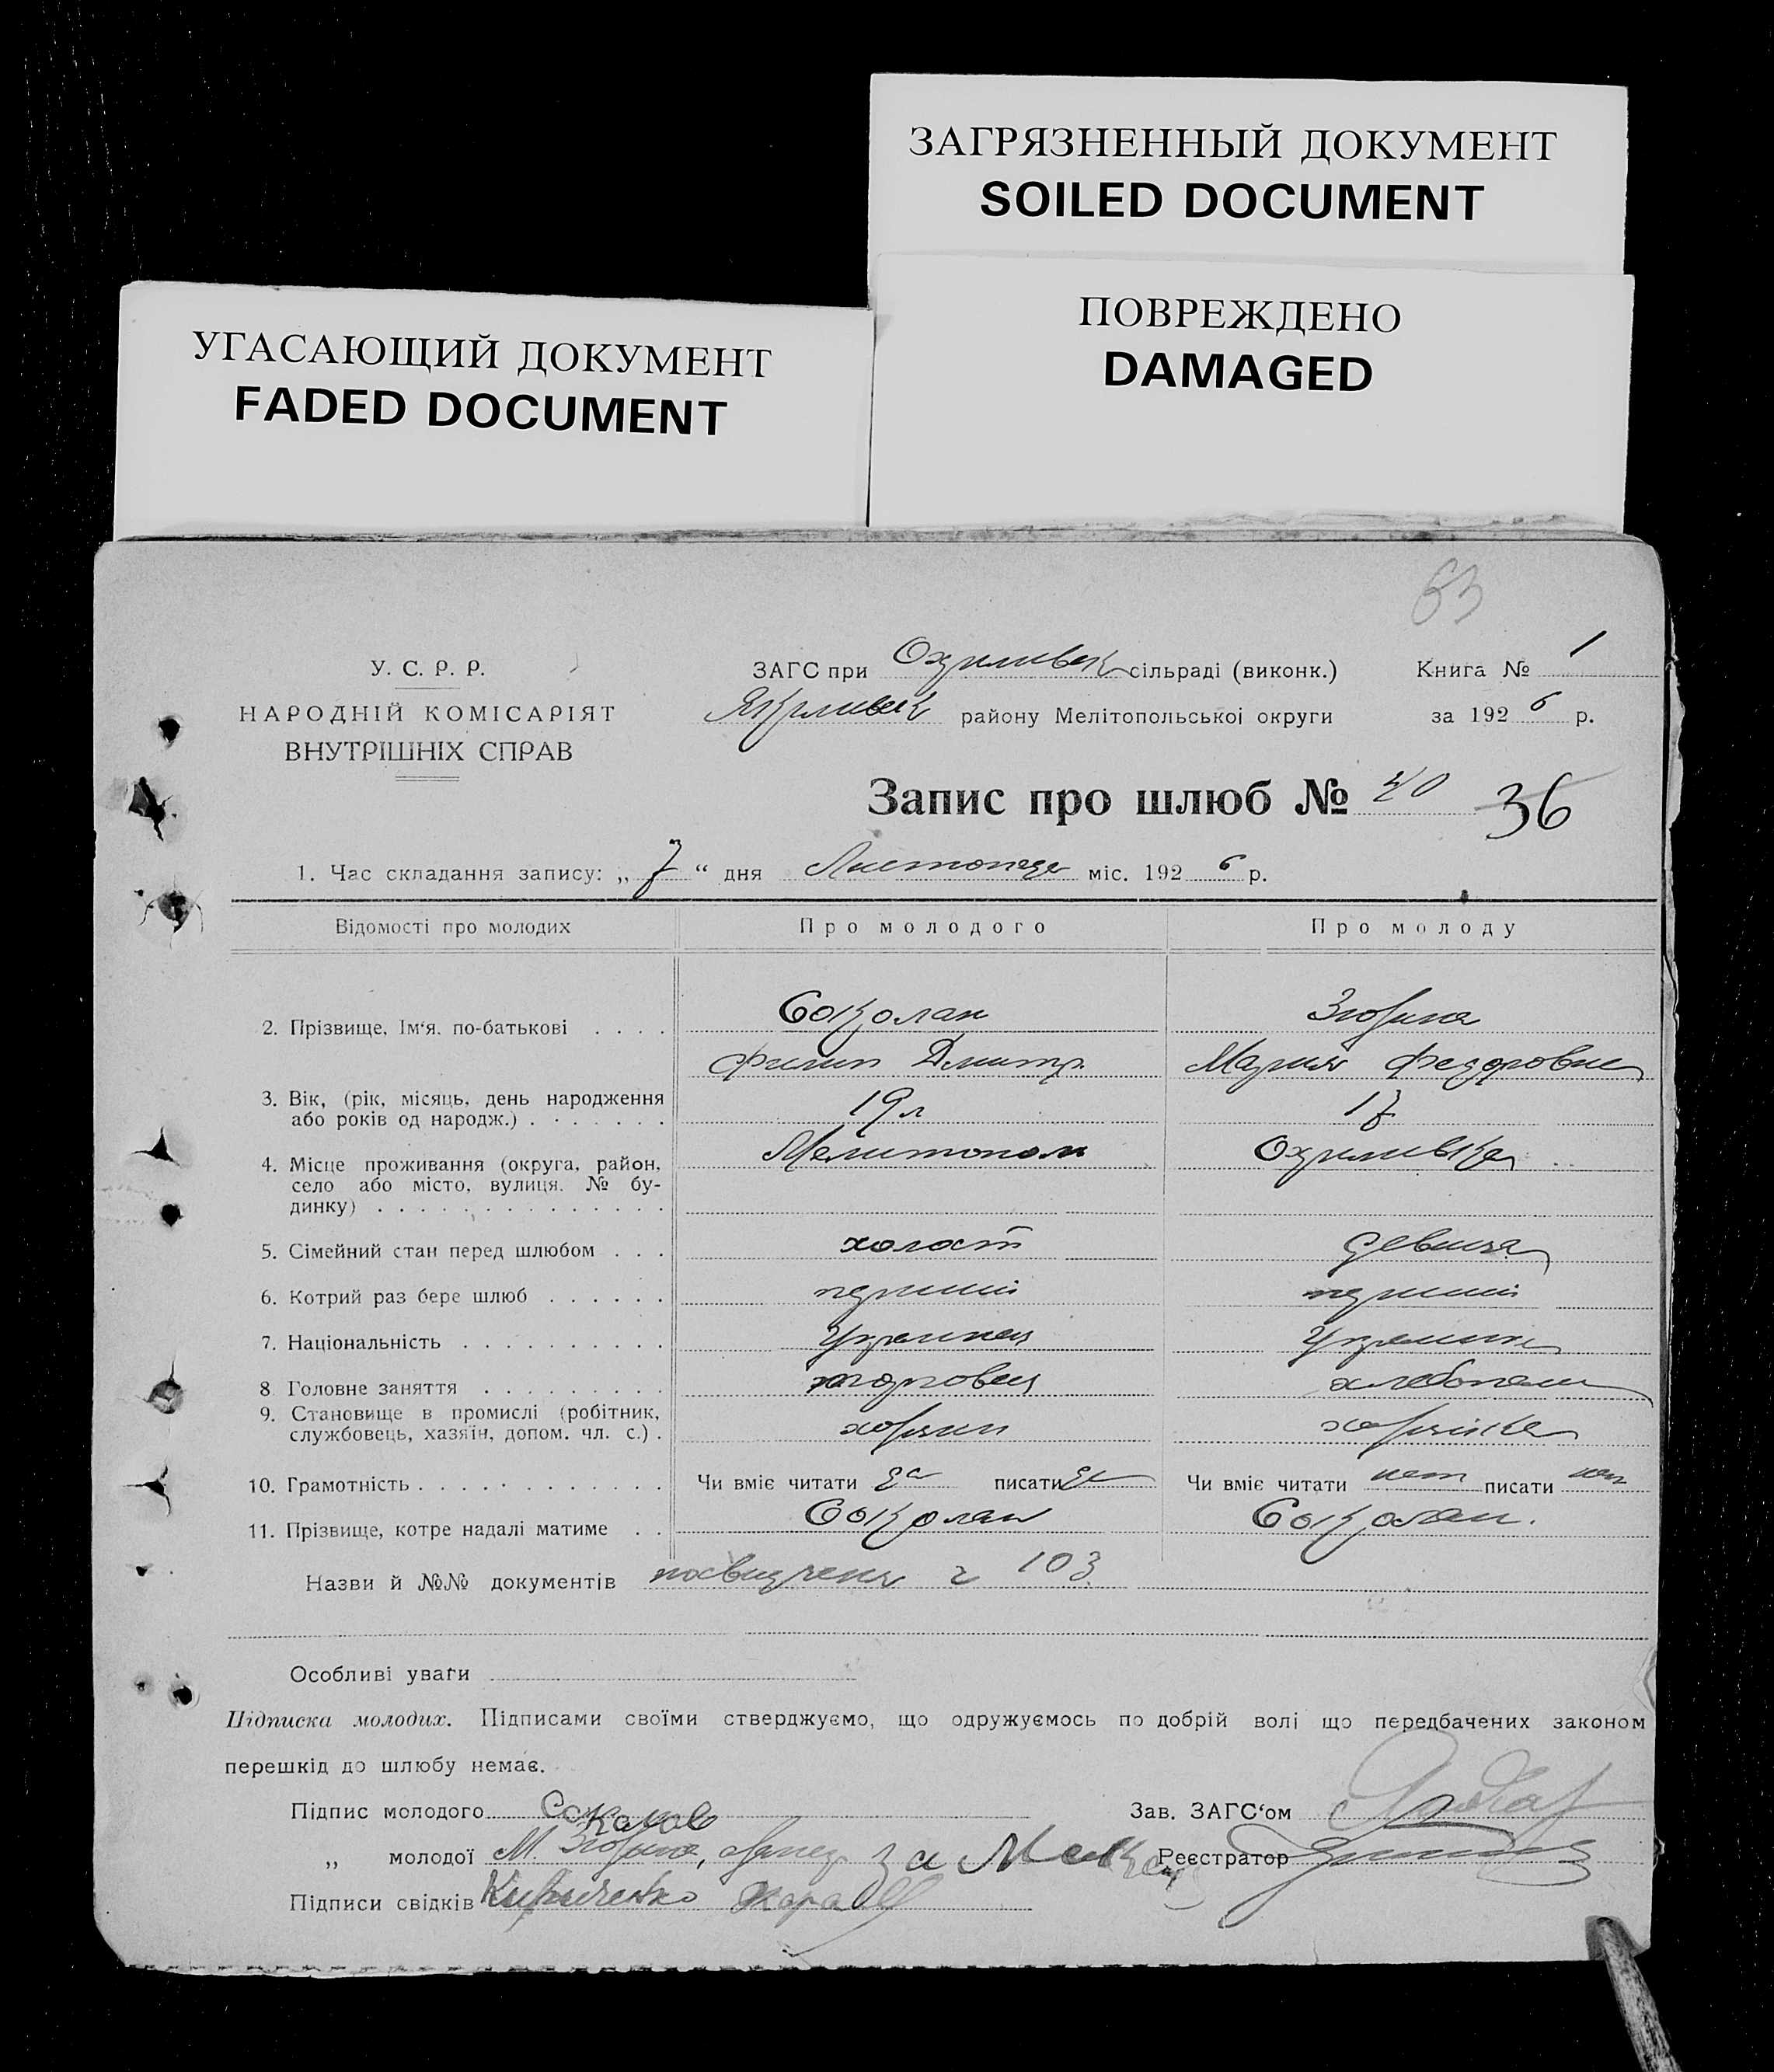 ЗАГРЯЗНЕННЫЙ ДОКУМЕНТ
SOILED DOCUMENT
ПОВРЕЖДЕНО
DAMAGED
УГАСАЮЩИЙ ДОКУМЕНТ
FADED DOCUMENT
63
У. С. Р. Р.
НАРОДНІЙ КОМІСАРІЯТ
ВНУТРІШНІХ СПРАВ
ЗАГС при Охримівск сільраді (виконк.) Книга № 1
Якимівск району Мелітопольської округи за 1926 р.
Запис про шлюб № 40 36
1. Час складання запису: „ 7 “ дня Листопада міс. 1926 р.
Відомості про молодих Про молодого Про молоду
2. Прізвище, Ім‘я, по-батькові . . . .
Филип Дмитр. Мария Федоровна
3. Вік, (рік, місяць, день народження 19 л 17
або років од народж.) . . . . . . .
4. Місце проживання (округа, район, Мелитополь Охримівка
село або місто, вулиця, № бу-
динку) . . . . . . . . . . . . . .
5. Сімейний стан перед шлюбом . . . холост девица
6. Котрий раз бере шлюб . . . . . . перший перший
7. Національність . . . . . . . . . . Украинец Украинка
8 Головне заняття . . . . . . . . . торговец хлебопаш
9. Становище в промислі (робітник,
службовець, хазяїн, допом. чл. с.) .
10. Грамотність . . . . . . . . . . . . Чи вміє читати да писати да Чи вміє читати нет писати нет
11. Прізвище, котре надалі матиме . .
Назви й №№ документів посвидченя 103
Особливі уваги
Підписка молодих. Підписами своїми стверджуємо, що одружуємось по добрій волі що передбачених законом
перешкід до шлюбу немає.
Підпис молодого Зав. ЗАГС‘ом
„ молодої М. за Реєстратор
Підписи свідків Кириченко